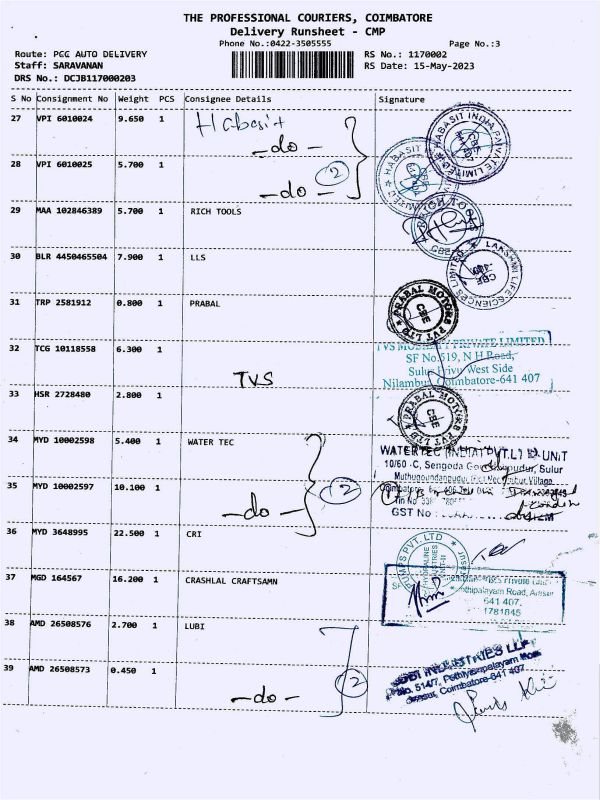 THE PROFESSIONAL COURIERS, COIMBATORE
Delivery Runsheet - CMP
Phone No.:0422-3505555 Page No.:3
Route: PCC AUTO DELIVERY RS No.: 1170002
Staff: SARAVANAN RS Date: 15-May-2023
DRS No.: DCJB117000203
S No Consignment No Weight PCS Consignee Details Signature
27 VPI 6010024 9.650 1 Habasit
-do-
HABASIT INDIA PRIVATE LIMITED
CBE
28 VPI 6010025 5.700 1
-do- 2
HABASIT
29 MAA 102846389 5.700 1 RICH TOOLS
TOOLS
30 BLR 4450465504 7.900 1 LLS
LAKSHMI LIFE SCIENCES LIMITED
CBE
31 TRP 2581912 0.800 1 PRABAL
PRABAL MOTORS PVT LTD
CBE
32 TCG 10118558 6.300 1
TVS PRIVATE LIMITED
SF No.519, N H Road,
West Side
Coimbatore-641 407
TVS
33 HSR 2728480 2.800 1
PRABAL MOTORS PVT LTD
CBE
34 MYD 10002598 5.400 1 WATER TEC
WATERTEC
UNIT
10/60 -C, Sengoda Sulur
35 MYD 10002597 10.100 1
-do- 2
GST No
36 MYD 3648995 22.500 1 CRI
PUMPS PVT. LTD
37 MGD 164567 16.200 1 CRASHLAL CRAFTSAMN
Road,
641 407.
1781845
38 AMD 26508576 2.700 1 LUBI
39 AMD 26508573 0.450 1
-do- 2
LLP
No. 514/7,
Coimbatore-641 407